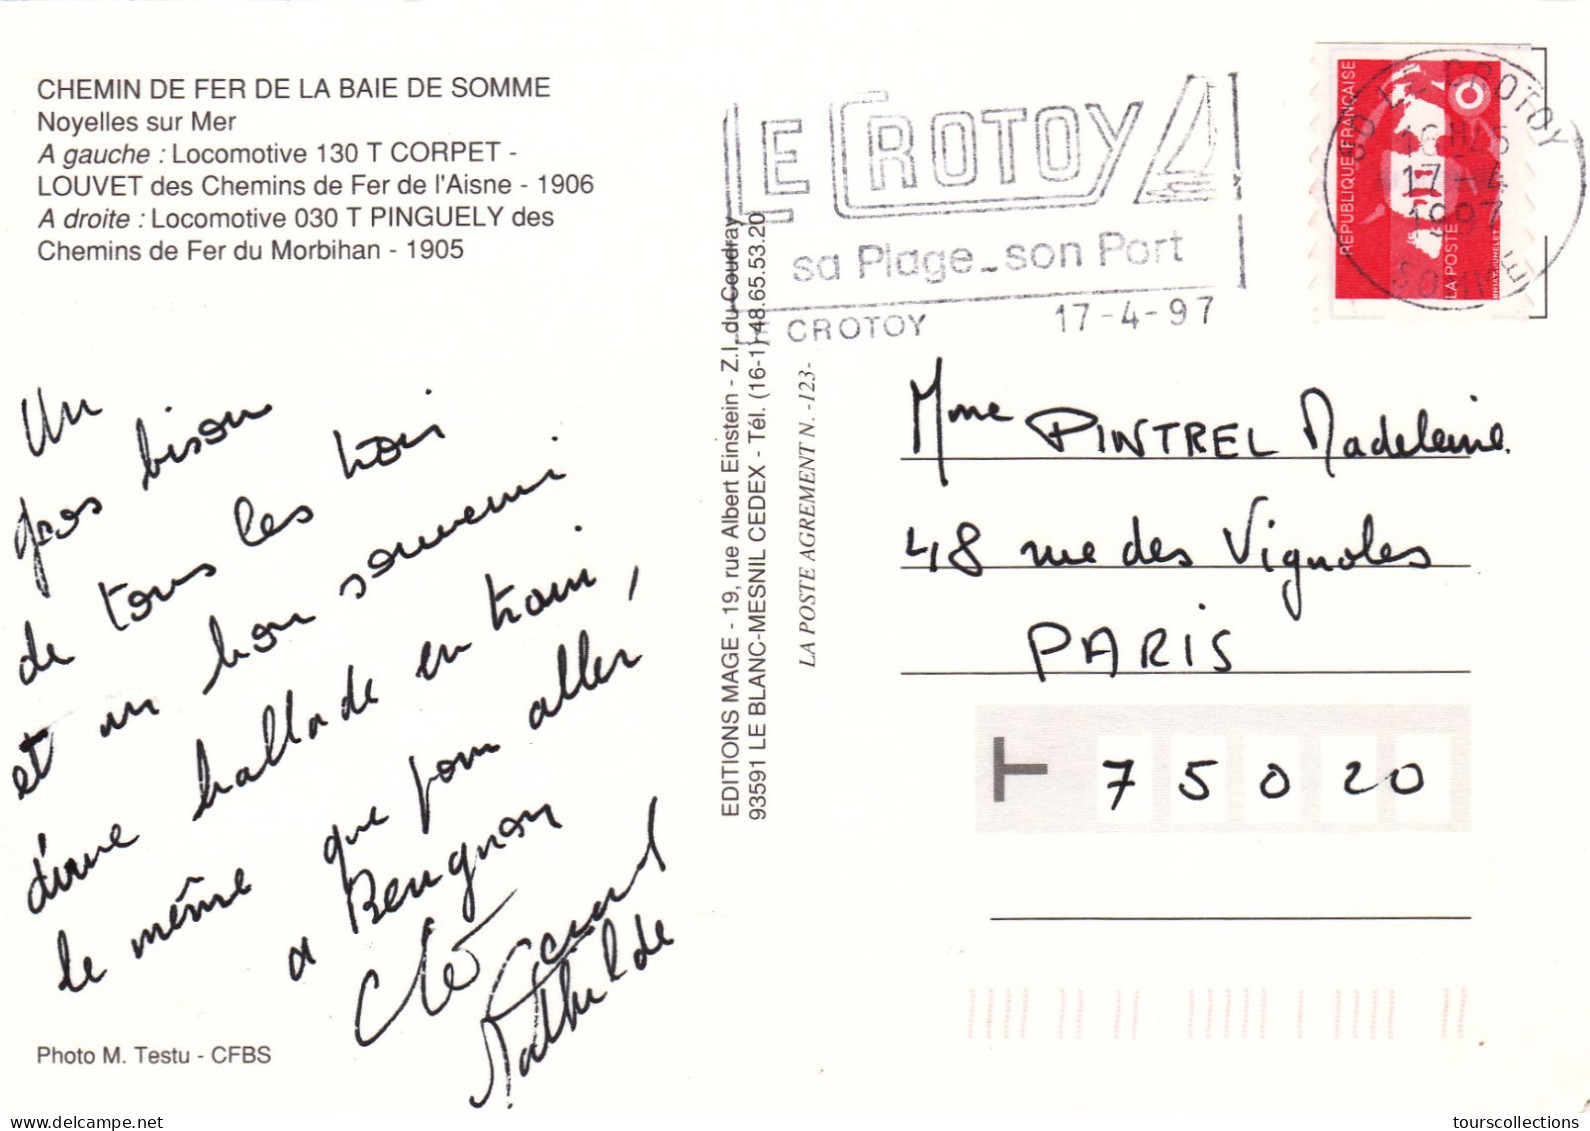 CHEMIN DE FER DE LA BAIE DE SOMME
Noyelles sur Mer
A gauche : Locomotive 130 T CORPET -
LOUVET des Chemins de Fer de l'Aisne - 1906
A droite : Locomotive 030 T PINGUELY des
Chemins de Fer du Morbihan - 1905
Un
gros bisou
de tous les trois
et un bon souvenir
d'une ballade en train,
le même que pour aller
a Beugnon
Cléo
Nathilde
Photo M. Testu - CFBS
EDITIONS MAGE - 19, rue Albert Einstein - Z.I. du Coudray
93591 LE BLANC-MESNIL CEDEX - Tél. (16-1) 48.65.53.20
LA POSTE AGREMENT N. -123-
LE CROTOY
sa Plage - son Port
LE CROTOY 17-4-97
REPUBLIQUE FRANÇAISE
LA POSTE
80 LE CROTOY
17-4
1997
SOMME
Mme PINTREL Madeleine.
48 rue des Vignoles
PARIS
75020
tourscollections